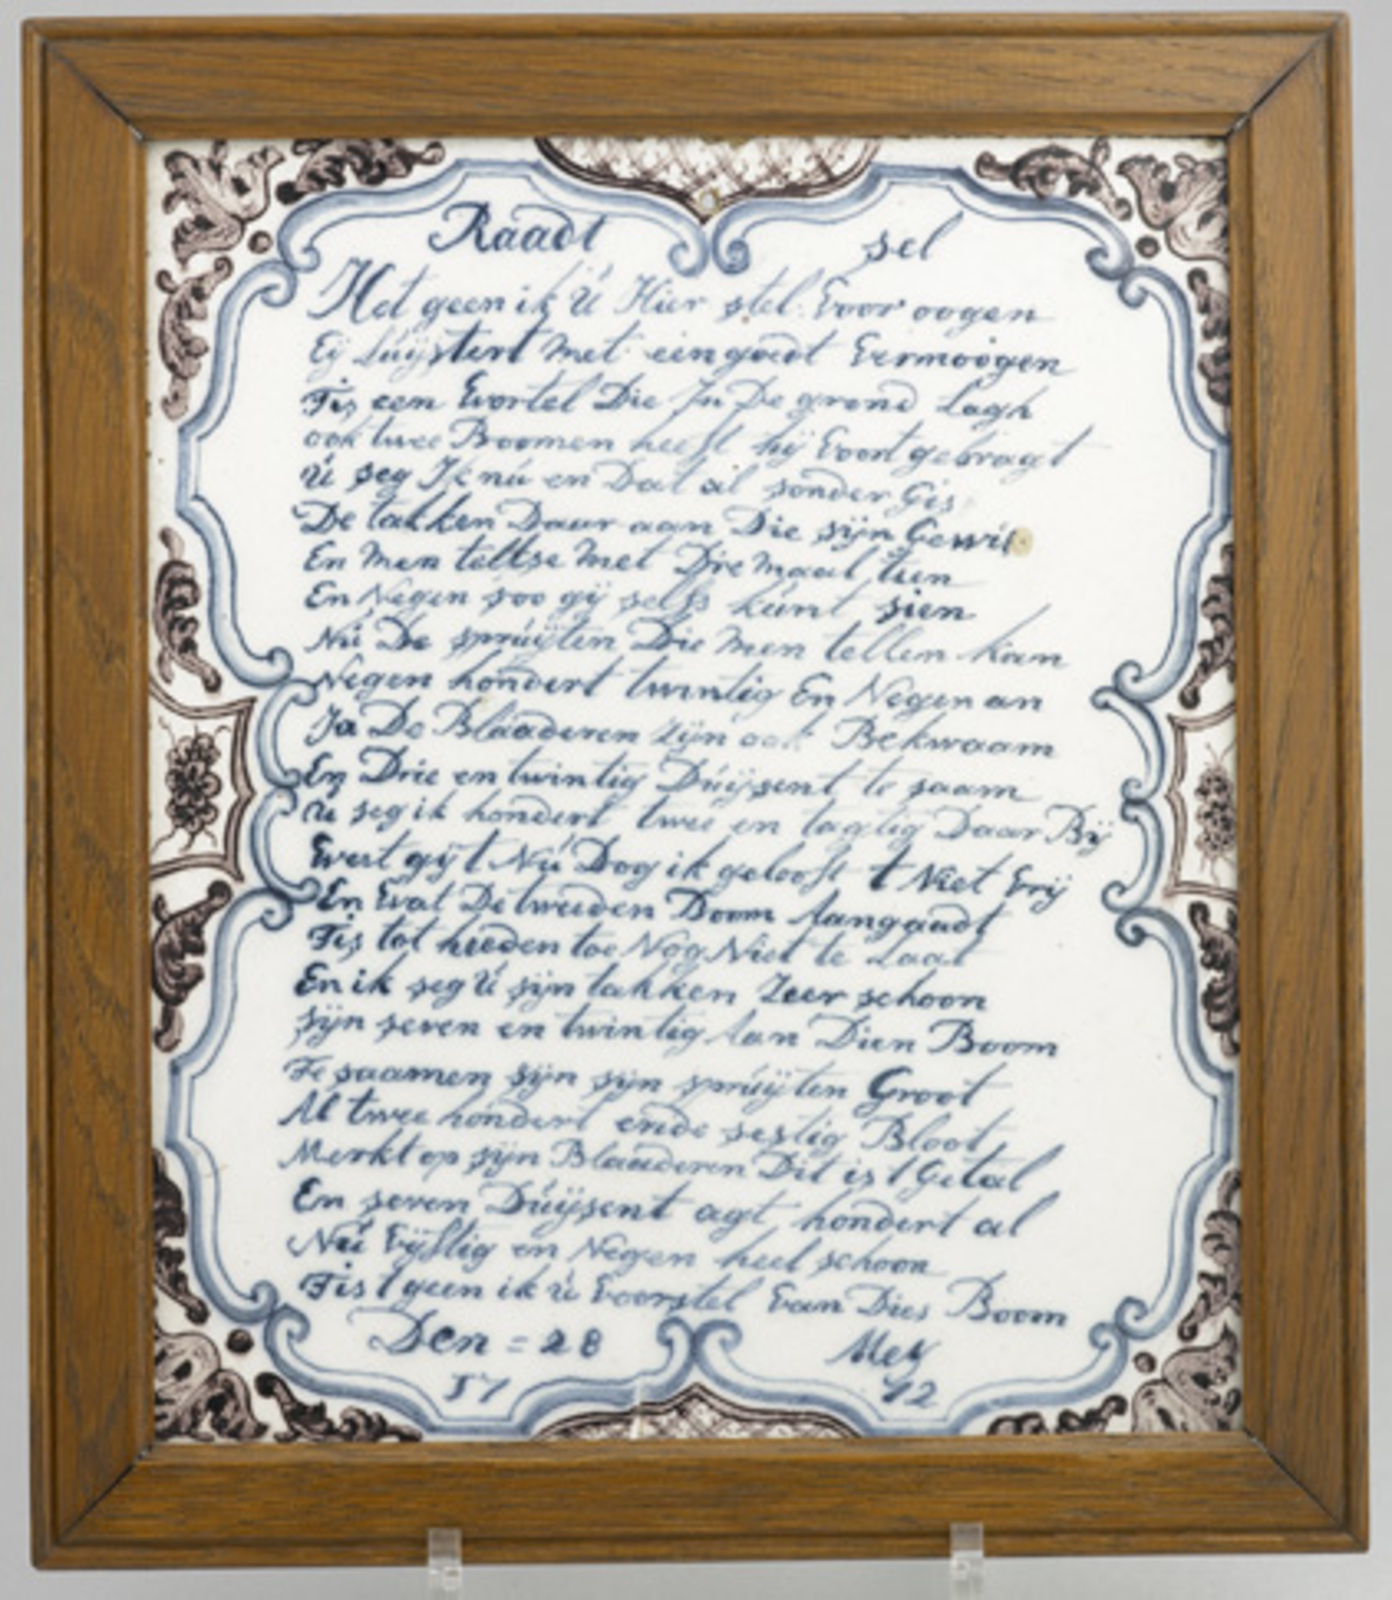 Raadt sel
Het geen ik ú Hier stel voor oogen
Eÿ Lúÿstert met een goedt vermoogen
Tis een wortel Die In De grond Lagh
ook twee Boomen heeft hÿ voort gebragt
ú seg Ik nú en Dat al sonder Gis
De takken Daar aan Die sÿn Gewis
En men teltse met Drie maal tien
En Negen soo gÿ selfs kúnt sien
Nú De sprúÿten Die men tellen kan
Negen hondert twintig En Negen an
Ja De Blaaderen Zÿn ook Bekwaam
En Drie en twintig Dúÿsent te saam
ú seg ik hondert twee en tagtig Daar Bÿ
wert gÿ t Nú Dog ik geloof t Niet vrÿ
En wat De tweeden Boom Aangaadt
Tis tot heeden toe Nog Niet te Laat
En ik seg ú sÿn takken Zeer schoon
sÿn seven en twintig Aan Dien Boom
Te saamen sÿn sÿn sprúÿten Groot
Al twee hondert ende sestig Bloot
Merkt op sÿn Blaaderen Dit is t Getal
En seven Dúÿsent agt hondert al
Nú vÿftig en Negen heel schoon
Tis t geen ik ú voorstel van Dies Boom
Den = 28 Meÿ
17 92